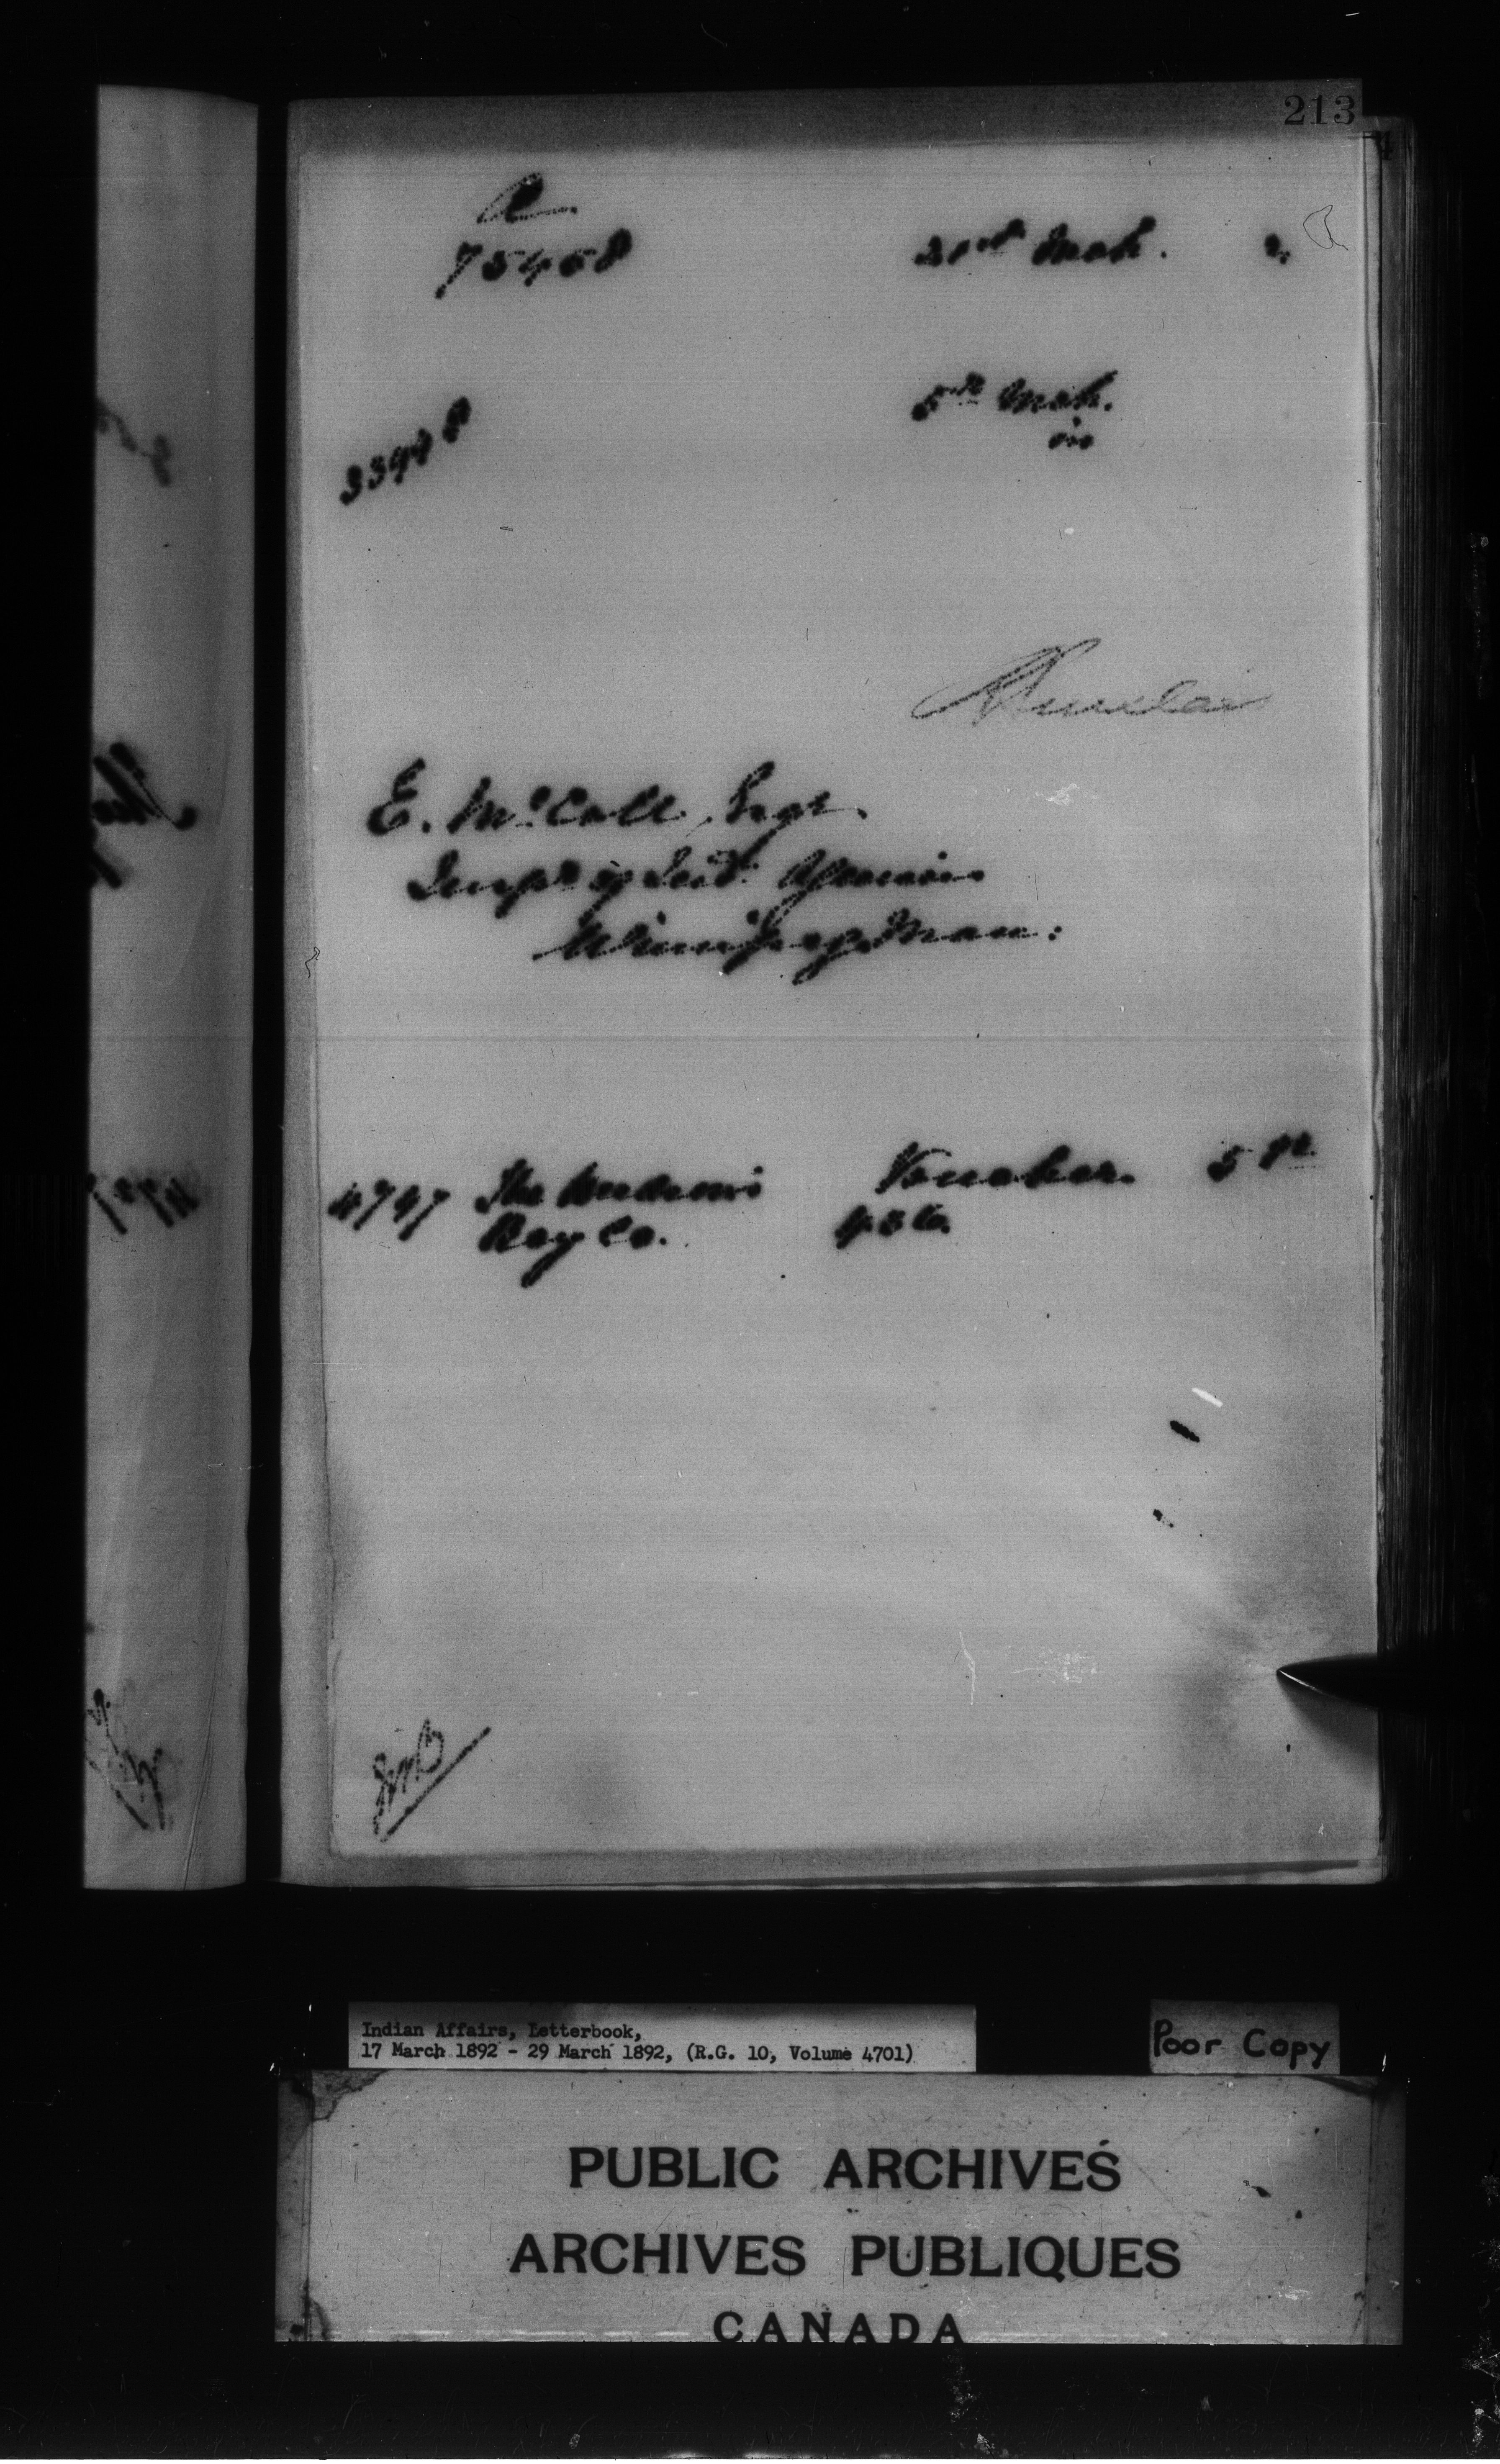 213
A
75458
21st Mch. 2
5th Mch.
in
3398
E. McColl, Esqr.
Supt of Ind. Agencies
Winnipeg Man:
4747 The Hudson's Voucher 5 
Bay Co. 436.
Indian Affairs, Letterbook,
17 March 1892 - 29 March 1892, (R.G. 10, Volume 4701)
Poor Copy
PUBLIC ARCHIVES
ARCHIVES PUBLIQUES
CANADA